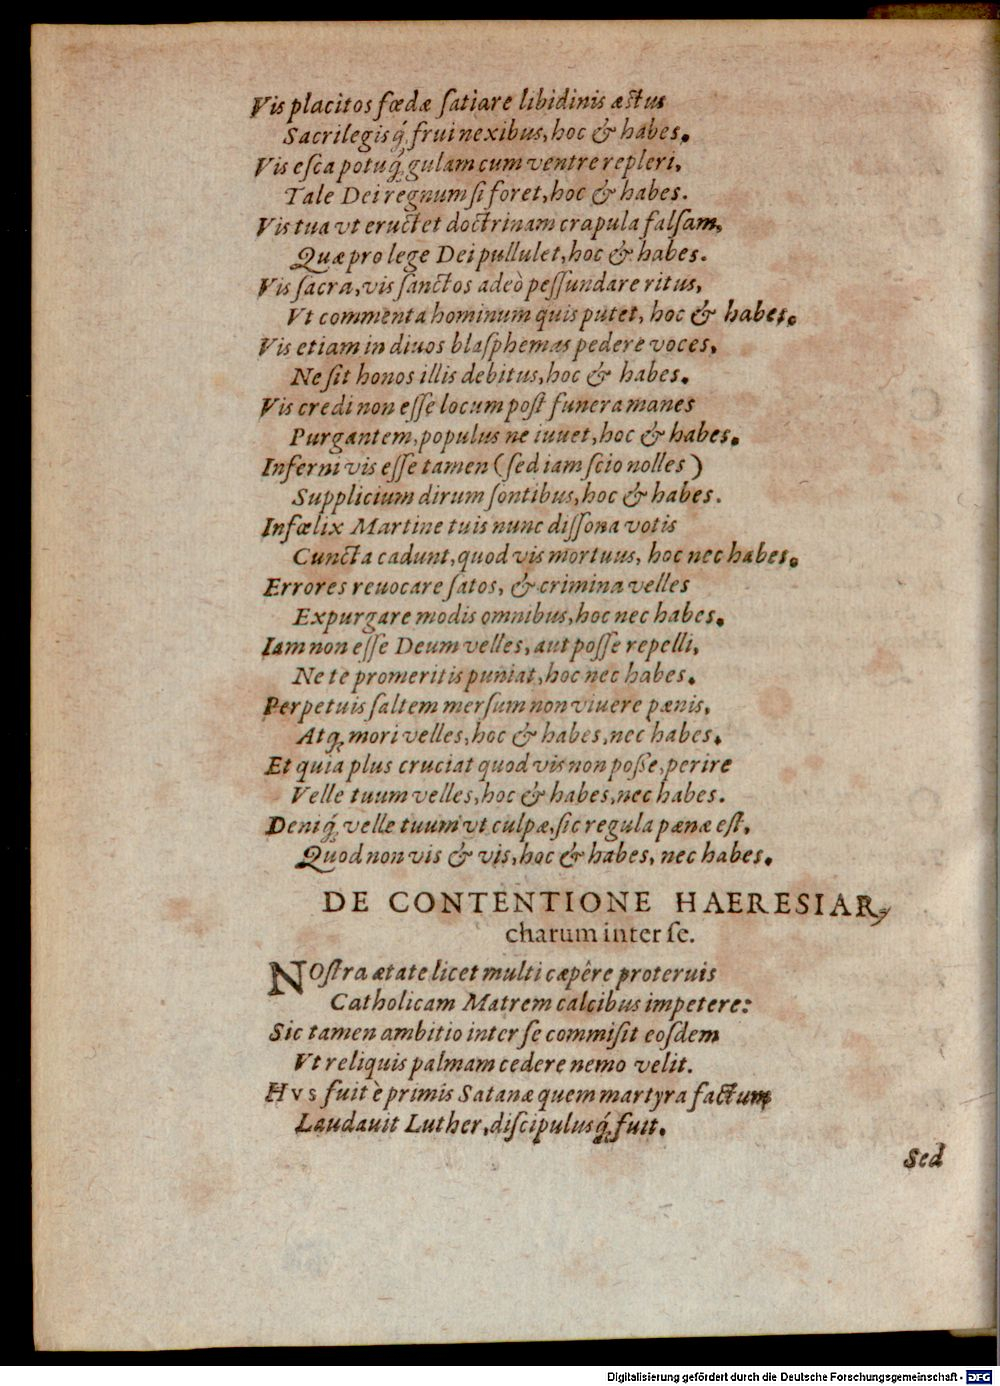 Vis placitos fœdæ ſatiare libidinis æſtus
Sacrilegisq́; frui nexibus, hoc & habes.
Vis eſca potuq́; gulam cum ventre repleri,
Tale Dei regnum ſi foret, hoc & habes.
Vis tua vt eructet doctrinam crapula falſam,
Quæ pro lege Dei pullulet, hoc & habes.
Vis ſacra, vis ſanctos adeò peſſundare ritus,
Vt commenta hominum quis putet, hoc & habes.
Vis etiam in diuos blaſphemas pedere voces,
Ne ſit honos illis debitus, hoc & habes.
Vis credi non eſſe locum poſt funera manes
Purgantem, populus ne iuuet, hoc & habes.
Inferni vis eſſe tamen (ſed iam ſcio nolles)
Supplicium dirum ſontibus, hoc & habes.
Infœlix Martine tuis nunc diſſona votis
Cuncta cadunt, quod vis mortuus, hoc nec habes.
Errores reuocare ſatos, & crimina velles
Expurgare modis omnibus, hoc nec habes.
Iam non eſſe Deum velles, aut poſſe repelli,
Ne te pro meritis puniat, hoc nec habes.
Perpetuis ſaltem merſum non viuere pænis,
Atq; mori velles, hoc & habes, nec habes.
Et quia plus cruciat quod vis non poſſe, perire
Velle tuum velles, hoc & habes, nec habes.
Deniq́; velle tuum vt culpæ, ſic regula pænæ eſt,
Quod non vis & vis, hoc & habes, nec habes.
DE CONTENTIONE HAERESIAR-
charum inter ſe.
NOſtra ætate licet multi cæpêre proteruis
Catholicam Matrem calcibus impetere:
Sic tamen ambitio inter ſe commiſit eoſdem
Vt reliquis palmam cedere nemo velit.
Hvs fuit è primis Satanæ quem martyra factum
Laudauit Luther, diſcipulusq́; fuit.
Sed
Digitalisierung gefördert durch die Deutsche Forschungsgemeinschaft - DFG